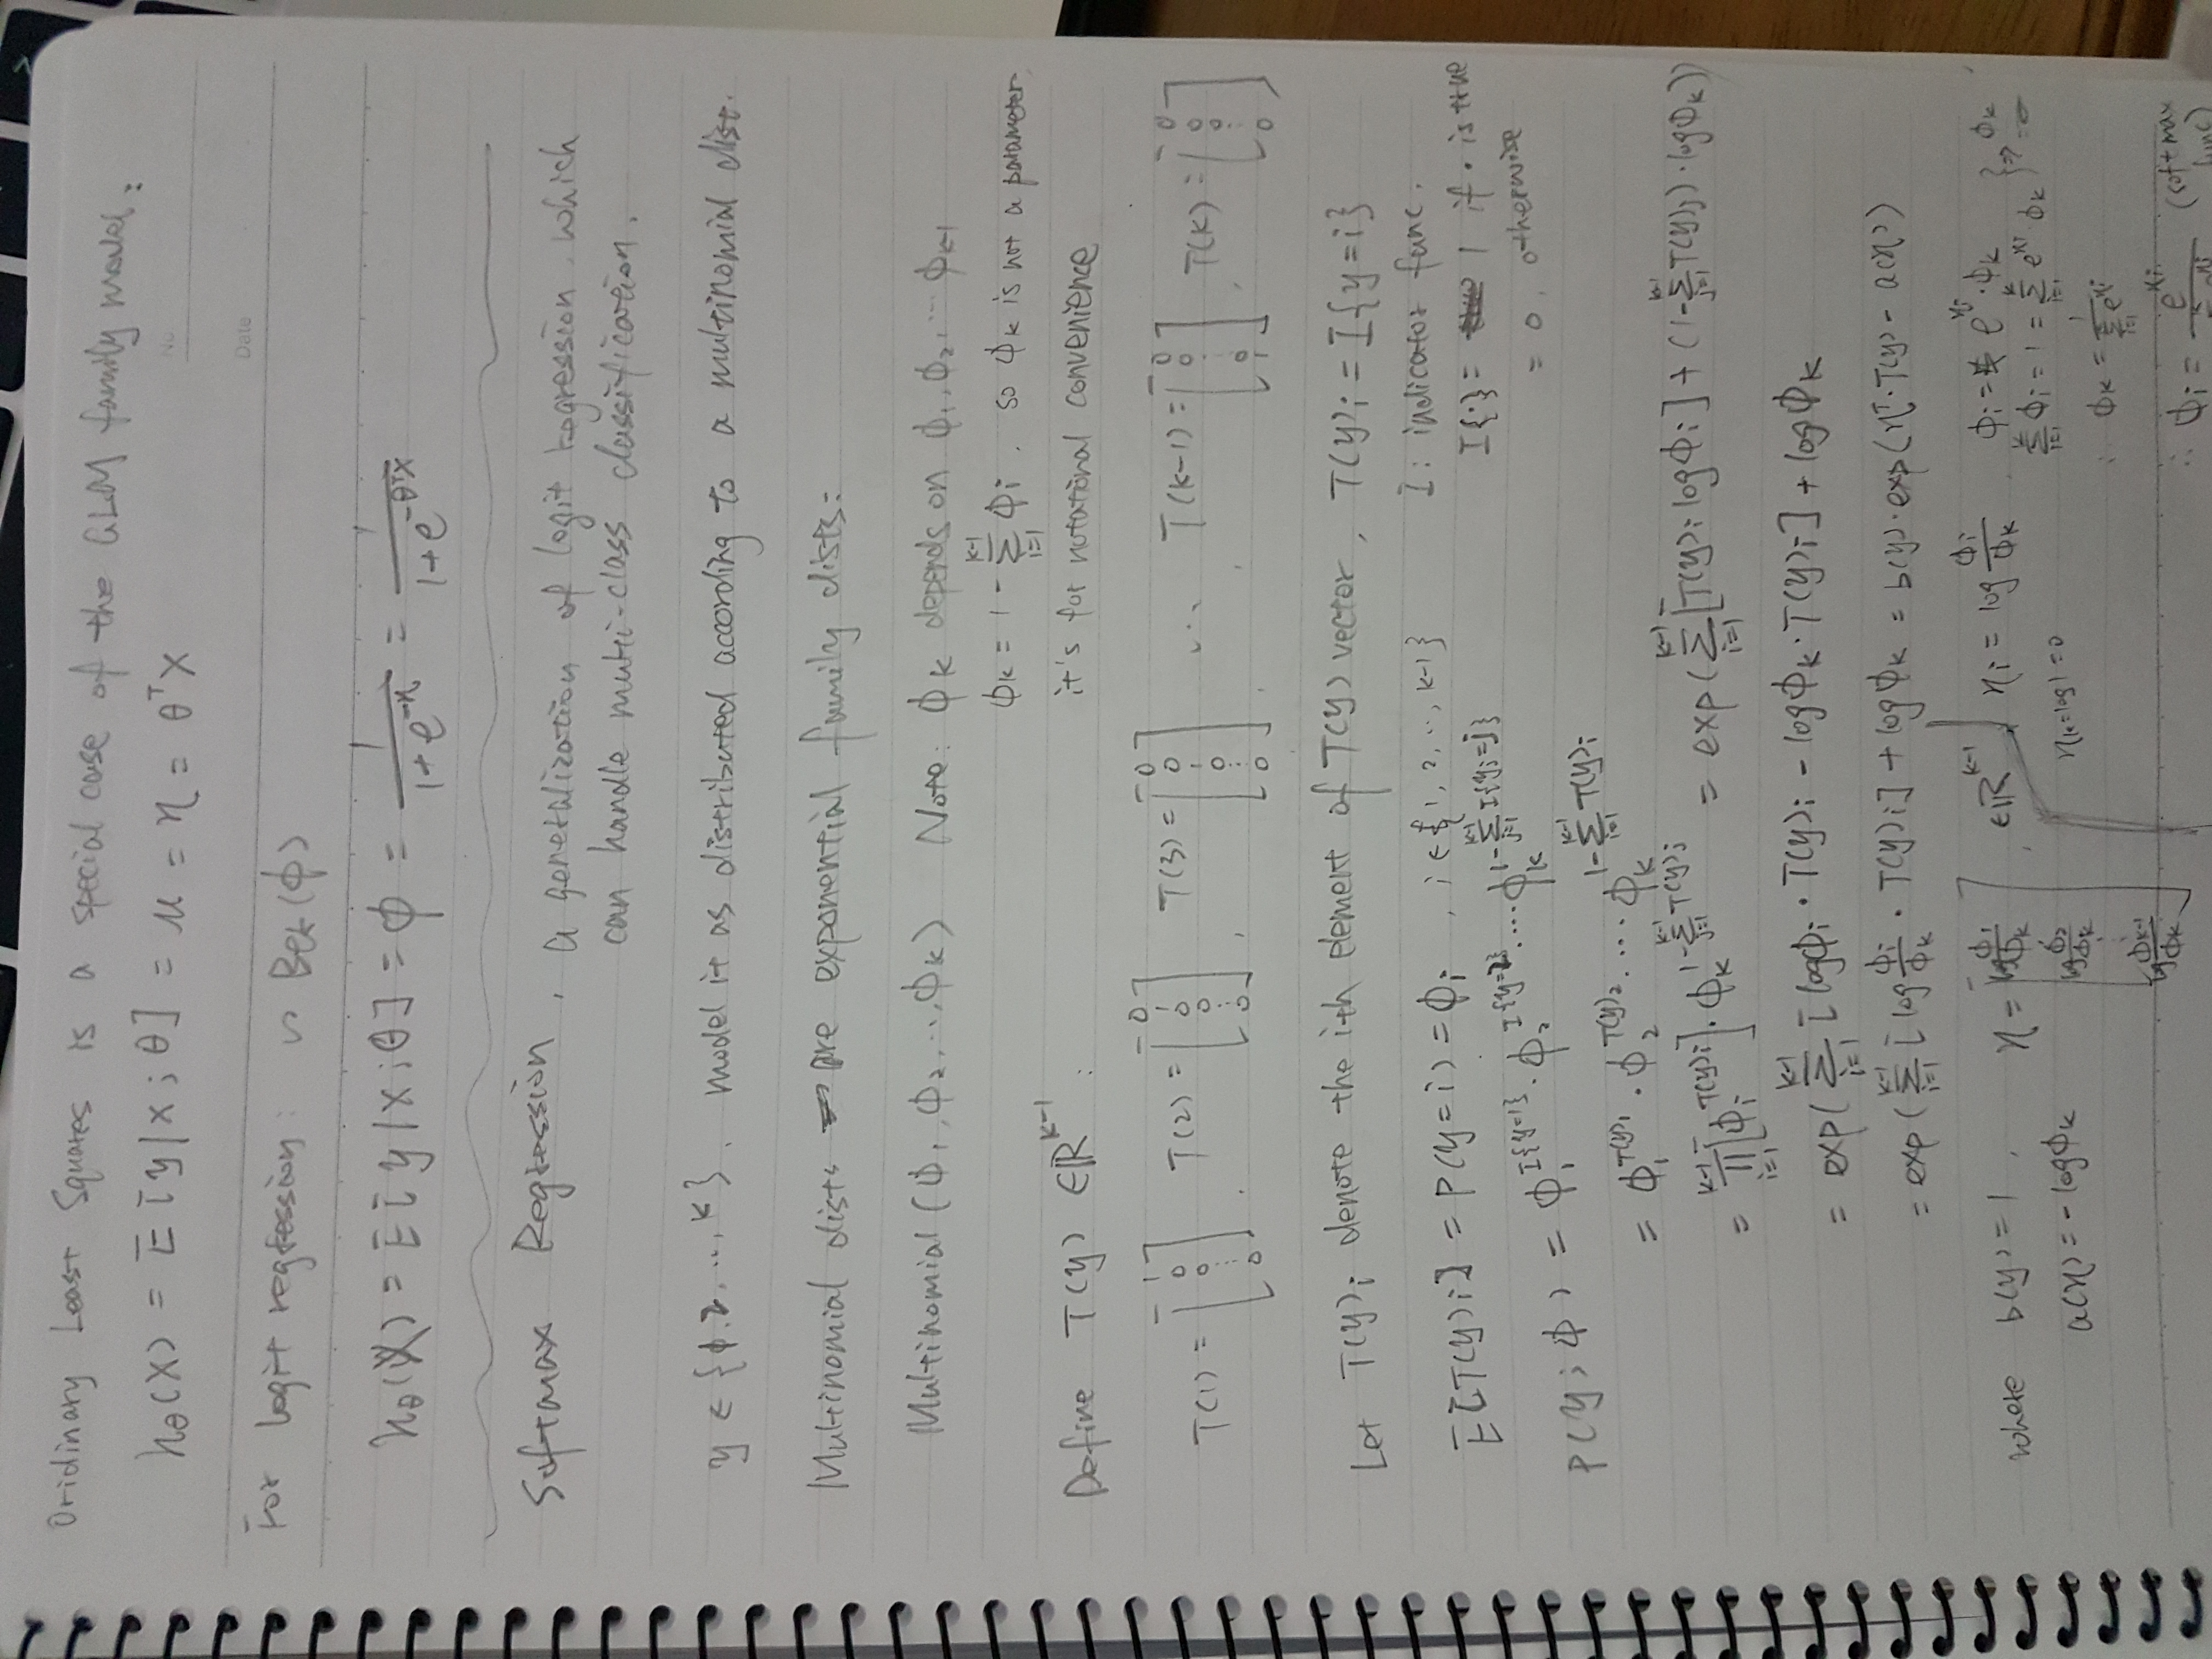 Oridinary Least Squares is a special case of the GLM family model:
hθ(x) = E[y|x;θ] = μ = η = θᵀx
No
Date
For logit regression: ∽ Ber(ϕ)
hθ(x) = E[y|x;θ] = ϕ = 1/(1+e^(-η)) = 1/(1+e^(-θᵀx))
Softmax Regression, a generalization of logit regression which
can handle multi-class classification.
y ∈ {1.2, ..., k}. model it as distributed according to a multinomial dist.
Multinomial dists are exponential family dists:
Multinomial (ϕ₁, ϕ₂, ..., ϕk) Note: ϕk depends on ϕ₁, ϕ₂, ... ϕk-1
ϕk = 1 - Σ_{i=1}^{k-1} ϕi. so ϕk is not a parameter,
it's for notational convenience
Define T(y) ∈ ℝ^{k-1} :
T(1) = [1 0 0 ⋮ 0], T(2) = [0 1 0 0 ⋮ 0], T(3) = [0 0 1 0 ⋮ 0], ... , T(k-1) = [0 0 ⋮ 0 1], T(k) = [0 0 0 ⋮ 0]
Let T(y)i denote the ith element of T(y) vector, T(y)i = I{y=i}
I: indicator func.
E[T(y)i] = P(y=i) = ϕi, i ∈ {1, 2, .., k-1}
I{·} = 1 if · is true
= 0, otherwise
P(y;ϕ) = ϕ₁^{I{y=1}} · ϕ₂^{I{y=2}} · ... ϕk^{1-Σ_{j=1}^{k-1} I{yi=j}}
= ϕ₁^{T(y)₁} · ϕ₂^{T(y)₂} · ... ϕk^{1-Σ_{i=1}^{k-1} T(y)i}
= Π_{i=1}^{k-1} [ϕi^{T(y)i}] · ϕk^{1-Σ_{j=1}^{k-1} T(y)j} = exp(Σ_{i=1}^{k-1} [T(y)i logϕi] + (1-Σ_{j=1}^{k-1} T(y)j) · logϕk))
= exp(Σ_{i=1}^{k-1} [logϕi · T(y)i - logϕk · T(y)i] + logϕk
= exp(Σ_{i=1}^{k-1} [log ϕi/ϕk · T(y)i] + logϕk = b(y) · exp(ηᵀ · T(y) - a(η))
where b(y) = 1, η = [log ϕ₁/ϕk log ϕ₂/ϕk ⋮ log ϕk-1/ϕk], ∈ ℝ^{k-1}
a(η) = -logϕk
ηi = log ϕi/ϕk
ηk = log1 = 0
ϕi = e^{ηi} · ϕk
Σ_{i=1}^{k} ϕi = 1 = Σ_{i=1}^{k} e^{ηi} ϕk } ⇒
∴ ϕk = 1/Σ_{i=1}^{k} e^{ηi}
∴ ϕi = e^{ηi} (softmax
func)